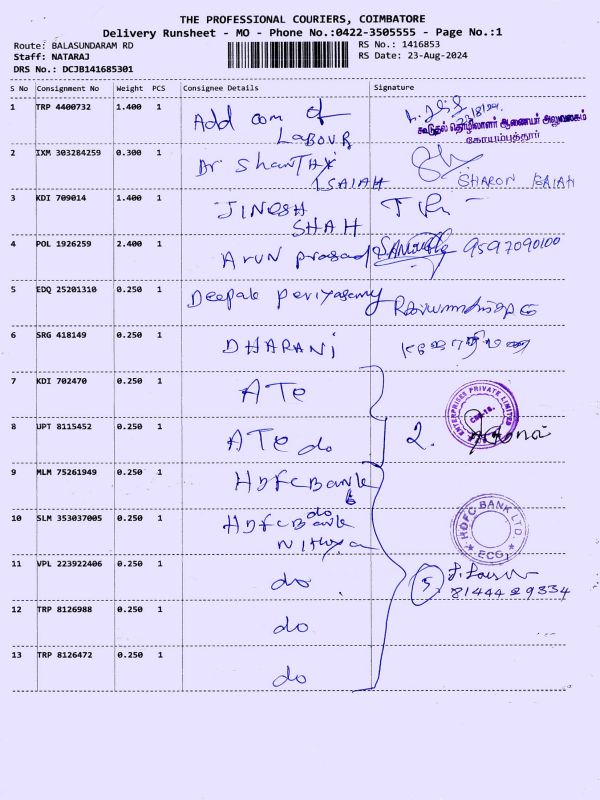 THE PROFESSIONAL COURIERS, COIMBATORE
Delivery Runsheet - MO - Phone No.:0422-3505555 - Page No.:1
Route: BALASUNDARAM RD RS No.: 1416853
Staff: NATARAJ RS Date: 23-Aug-2024
DRS No.: DCJB141685301
S No Consignment No Weight PCS Consignee Details Signature
1 TRP 4400732 1.400 1 Add com of
LABOUR
கூடுதல் தொழிலாளர் ஆணையர் அலுவலகம்
கோயம்புத்தூர்
2 IXM 303284259 0.300 1 Dr Shanthi
ISAIAH SHARON ISAIAH
3 KDI 709014 1.400 1 JINESH
SHAH
4 POL 1926259 2.400 1 Arun prasad 9597090100
5 EDQ 25201310 0.250 1 Deepak periyasamy
6 SRG 418149 0.250 1 DHARANI
7 KDI 702470 0.250 1 ATe
ENTERPRISES PRIVATE LIMITED
CBE-18.
8 UPT 8115452 0.250 1 ATe do 2.
9 MLM 75261949 0.250 1 HDFC Bank
10 SLM 353037005 0.250 1 HDFC Bank do
Nithya
HDFC BANK LTD.
11 VPL 223922406 0.250 1 do 5
8144429334
12 TRP 8126988 0.250 1 do
13 TRP 8126472 0.250 1 do